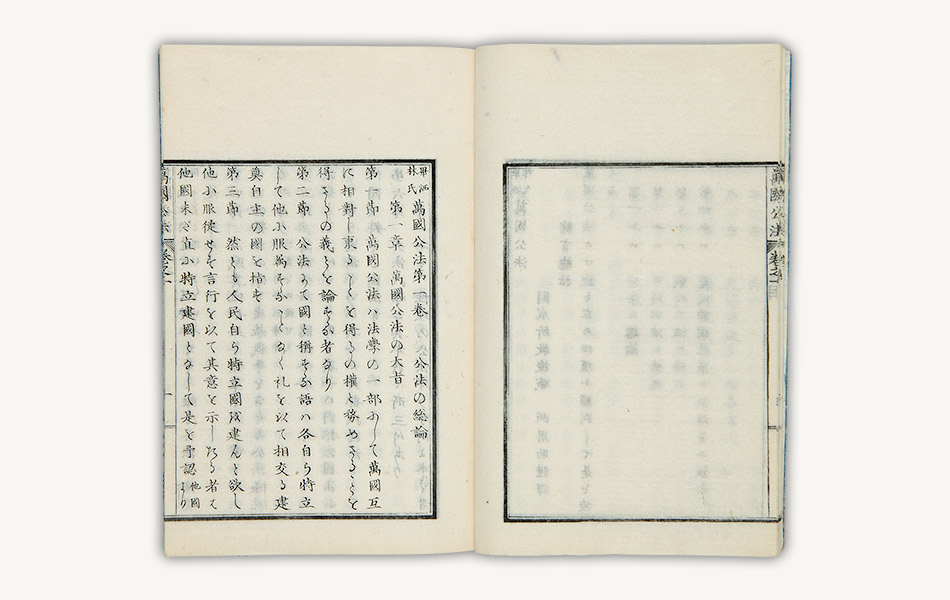 萬國公法 卷之
畢洒林氏 萬國公法第一卷 公法の総論
第一章 萬國公法の大旨
第一節 萬國公法ハ法學の一部にして萬國互
に相對し ことを得るの權と務めさることを
得さるの義とを論する者なり
第二節 公法にて國と稱する語ハ各自ら特立
して他に服属することなく礼を以て相交る建
奠自主の國を指す
第三節 然とも人民自ら特立國を建んと欲し
他に服従せす言行を以て其意を示したる者
他國未だ直に特立建國となして是を予認 他國より
萬國公法 卷之一